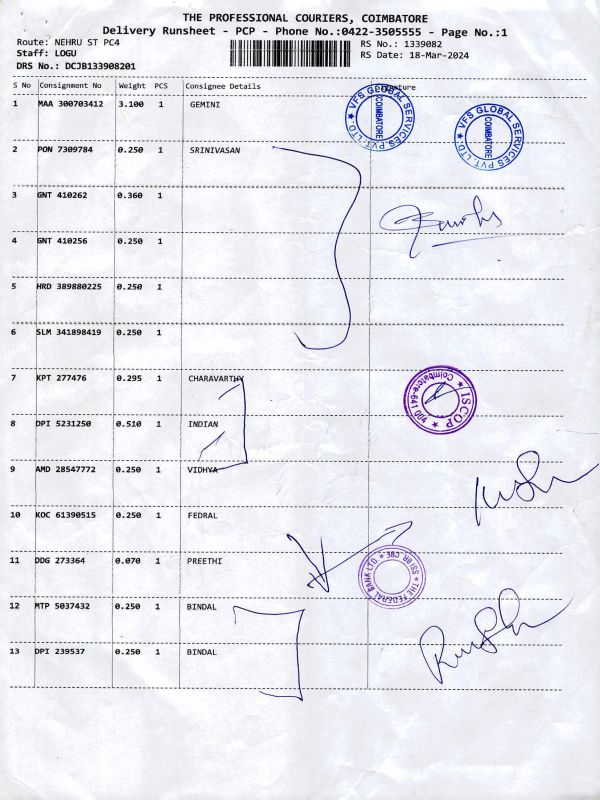 THE PROFESSIONAL COURIERS, COIMBATORE
Delivery Runsheet - PCP - Phone No.:0422-3505555 - Page No.:1
Route: NEHRU ST PC4 RS No.: 1339082
Staff: LOGU RS Date: 18-Mar-2024
DRS No.: DCJB133908201
S No Consignment No Weight PCS Consignee Details
1 MAA 300703412 3.100 1 GEMINI
VFS GLOBAL SERVICES PVT. LTD. ★ COIMBATORE
VFS GLOBAL SERVICES PVT. LTD. ★ COIMBATORE
2 PON 7309784 0.250 1 SRINIVASAN
3 GNT 410262 0.360 1
4 GNT 410256 0.250 1
5 HRD 389880225 0.250 1
6 SLM 341898419 0.250 1
7 KPT 277476 0.295 1 CHARAVARTHY
★ ISCOP ★ Coimbatore-641 004
8 DPI 5231250 0.510 1 INDIAN
9 AMD 28547772 0.250 1 VIDHYA
10 KOC 61390515 0.250 1 FEDRAL
11 DDG 273364 0.070 1 PREETHI
★ THE FEDERAL BANK LTD ★ SSI BR. CBE
12 MTP 5037432 0.250 1 BINDAL
13 DPI 239537 0.250 1 BINDAL